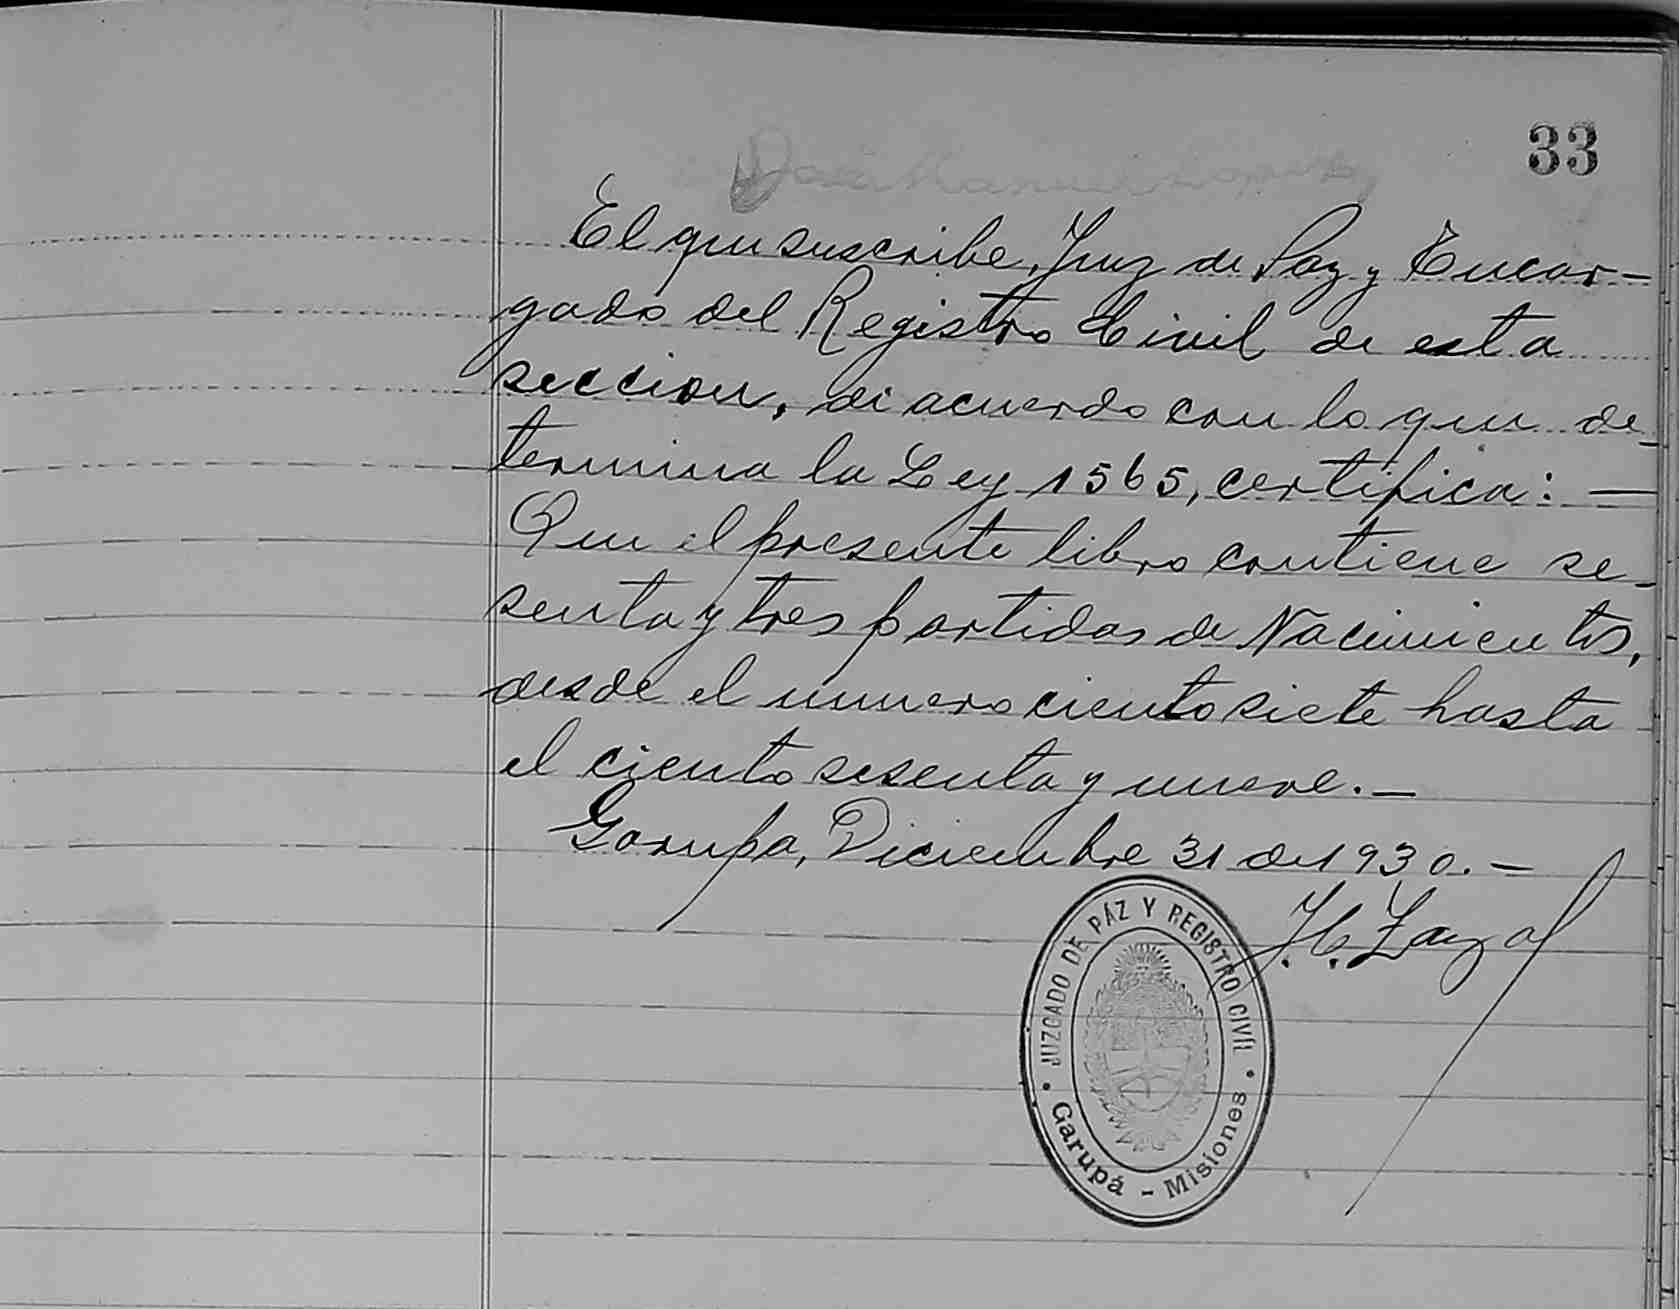 33
El que suscribe, Juez de Paz y Encar-
gado del Registro Civil de esta
seccion, de acuerdo con lo que de-
termina la Ley 1565, certifica: —
Que el presente libro contiene se-
senta y tres partidas de Nacimientos,
desde el numero ciento siete hasta
el ciento sesenta y nueve. —
Garupa, Diciembre 31 de 1930. —
JUZGADO DE PÁZ Y REGISTRO CIVÍL
Garupá - Misiones